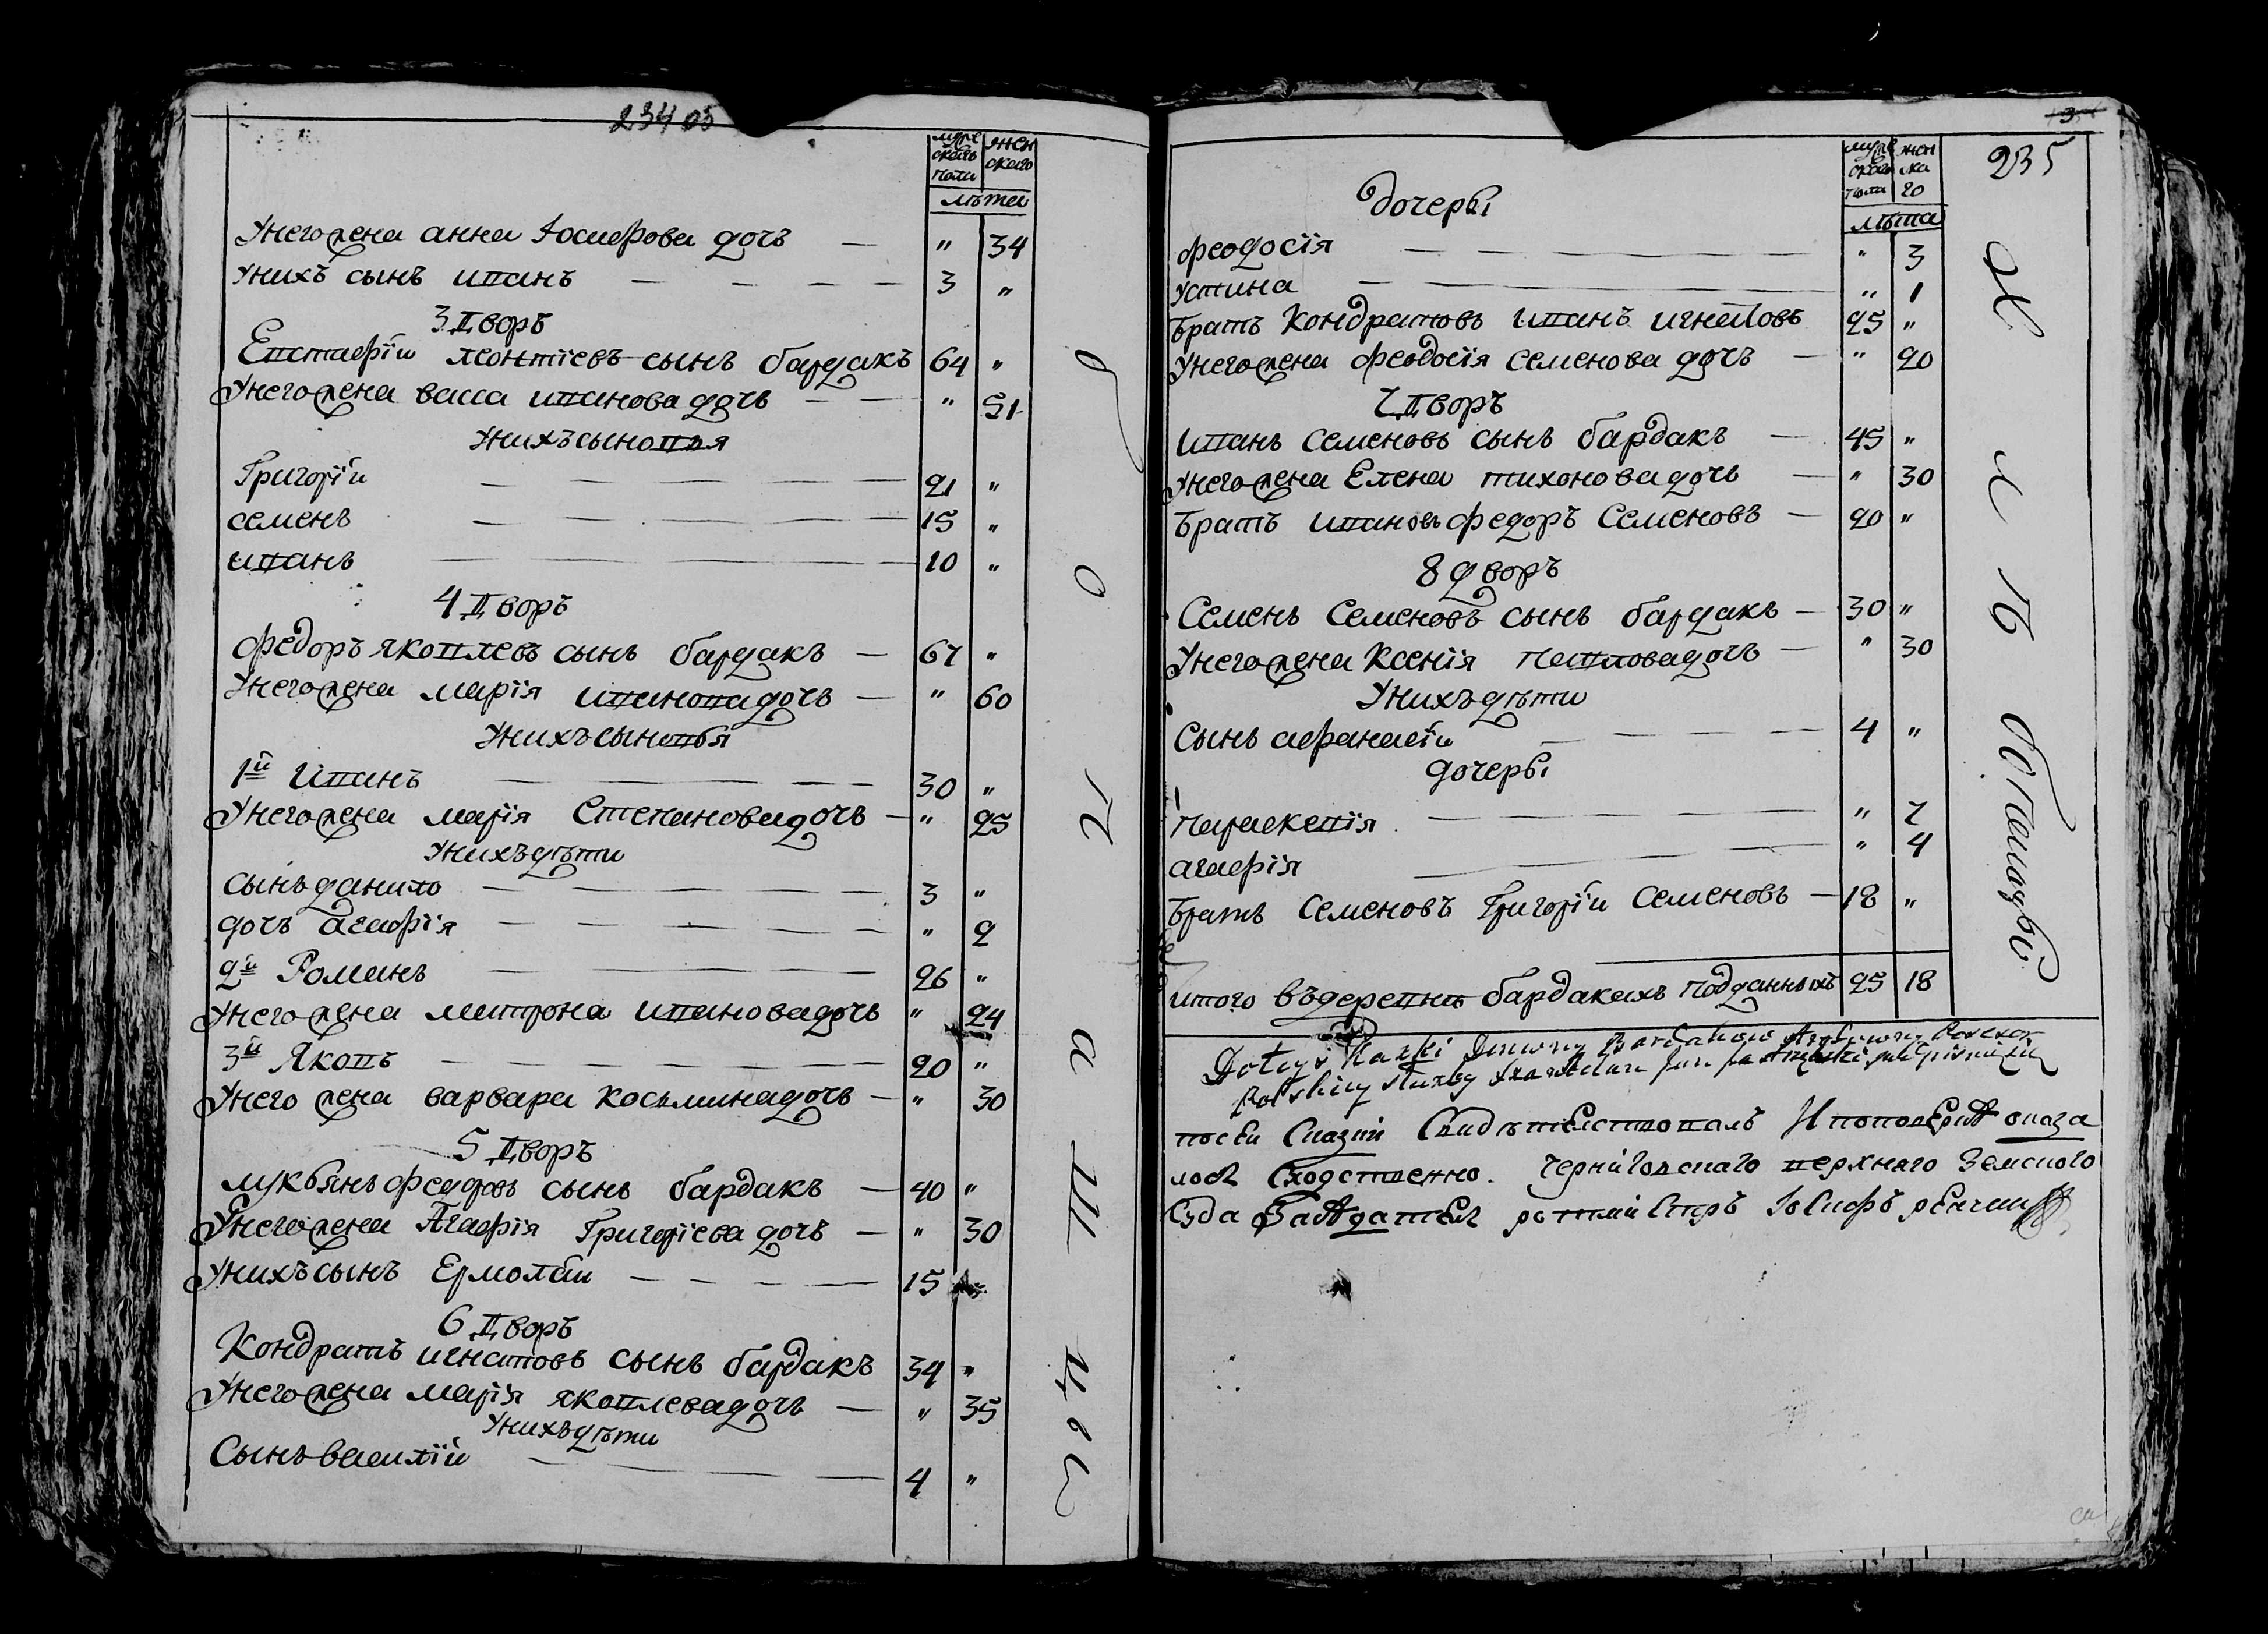 234 об
муже
скаго
пола
жен
скаго
лѣта
Унего жена анна Іосифова дочъ — " 34
Унихъ сынъ иванъ — — — — 3 "
3 Дворъ
Евстафій леонтіевъ сынъ бардакъ 64 "
Унего жена васса иванова дочъ — — " 51
Унихъ сыновья
Григорій — — — — — 21 "
семенъ — — — — — 15 "
иванъ — — — — — 10 "
4 Дворъ
федоръ яковлевъ сынъ бардакъ — 67 "
Унего жена марія иванова дочъ — " 60
Унихъ сыновья
1й Иванъ — — — — — 30 "
Унего жена марія Степанова дочъ — " 25
Унихъ дѣти
сынъ данило — — — — — 3 "
дочъ агафія — — — — — " 2
2й Романъ — — — — — 26 "
Унего жена матрона иванова дочъ " 24
3й Яковъ — — — — — 20 "
Унего жена варвара косьмина дочъ — " 30
5 Дворъ
лукьянъ федоровъ сынъ бардакъ — 40 "
Унего жена Агафія Григоріева дочъ — " 30
Унихъ сынъ Ермолай — — — — 15
6 Дворъ
Кондратъ игнатовъ сынъ бардакъ 34 "
Унего жена марія яковлева дочъ — " 35
Унихъ дѣти
Сынъ василій — — — — 4 "
235
муже
скаго
пола
жен
ска
го
лѣта
дочеры
феодосія — — — — — " 3
устина — — " 1
братъ Кондратовъ иванъ игнатовъ 25 "
Унего жена феодосія семенова дочъ — " 20
7 Дворъ
иванъ семеновъ сынъ бардакъ — 45 "
Унего жена Елена тихонова дочъ — " 30
братъ ивановъ федоръ Семеновъ — 20 "
8 дворъ
Семенъ Семеновъ сынъ бардакъ — 30 "
Унего жена Ксенія павлова дочъ — " 30
Унихъ дѣти
Сынъ афанасій — — — — 4 "
дочеры
параскевія — — — — " 7
агафія — — — " 4
братъ Семеновъ Григорій Семеновъ — 18 "
итого въ деревнѣ бардакахъ подданныхъ 25 18
Do tey
посей Сказки Свидѣтелствовалъ И поповерке оказа
лось Сходственно. Черниговскаго верхнего Земского
Суда Заседатель ротмистръ Іосифъ